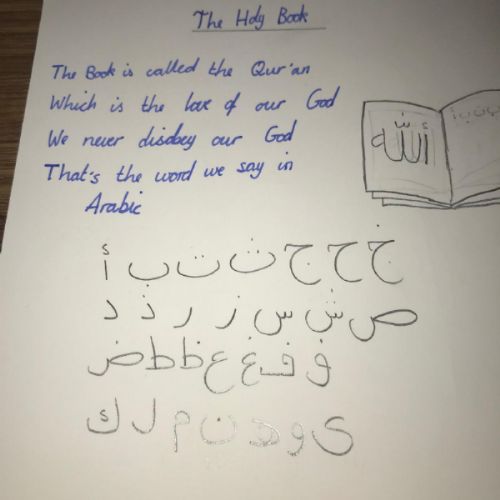 The Holy Book
The Book is called the Qur'an
Which is the love of our God
We never disobey our God
That's the word we say in
Arabic
أللّه
أ ب ت ث ج ح خ
د ذ ر ز س ش ص
ض ط ظ ع غ ف
ك ل م ن ه و ى